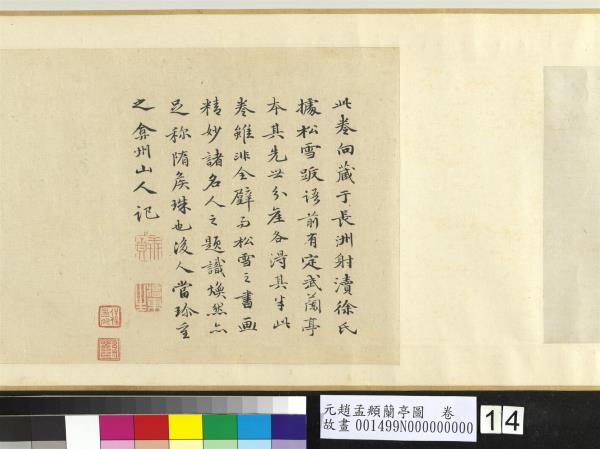 此卷向藏于長洲射瀆徐氏
據松雪跋語前有定武蘭亭
本其先世分産各得其半此
卷雖非全璧而松雪之書畫
精妙諸名人之題識煥然亦
足称隋矦珠也後人當珍重
之弇州山人記
元趙孟頫蘭亭圖 卷
故畫001499N000000000
14